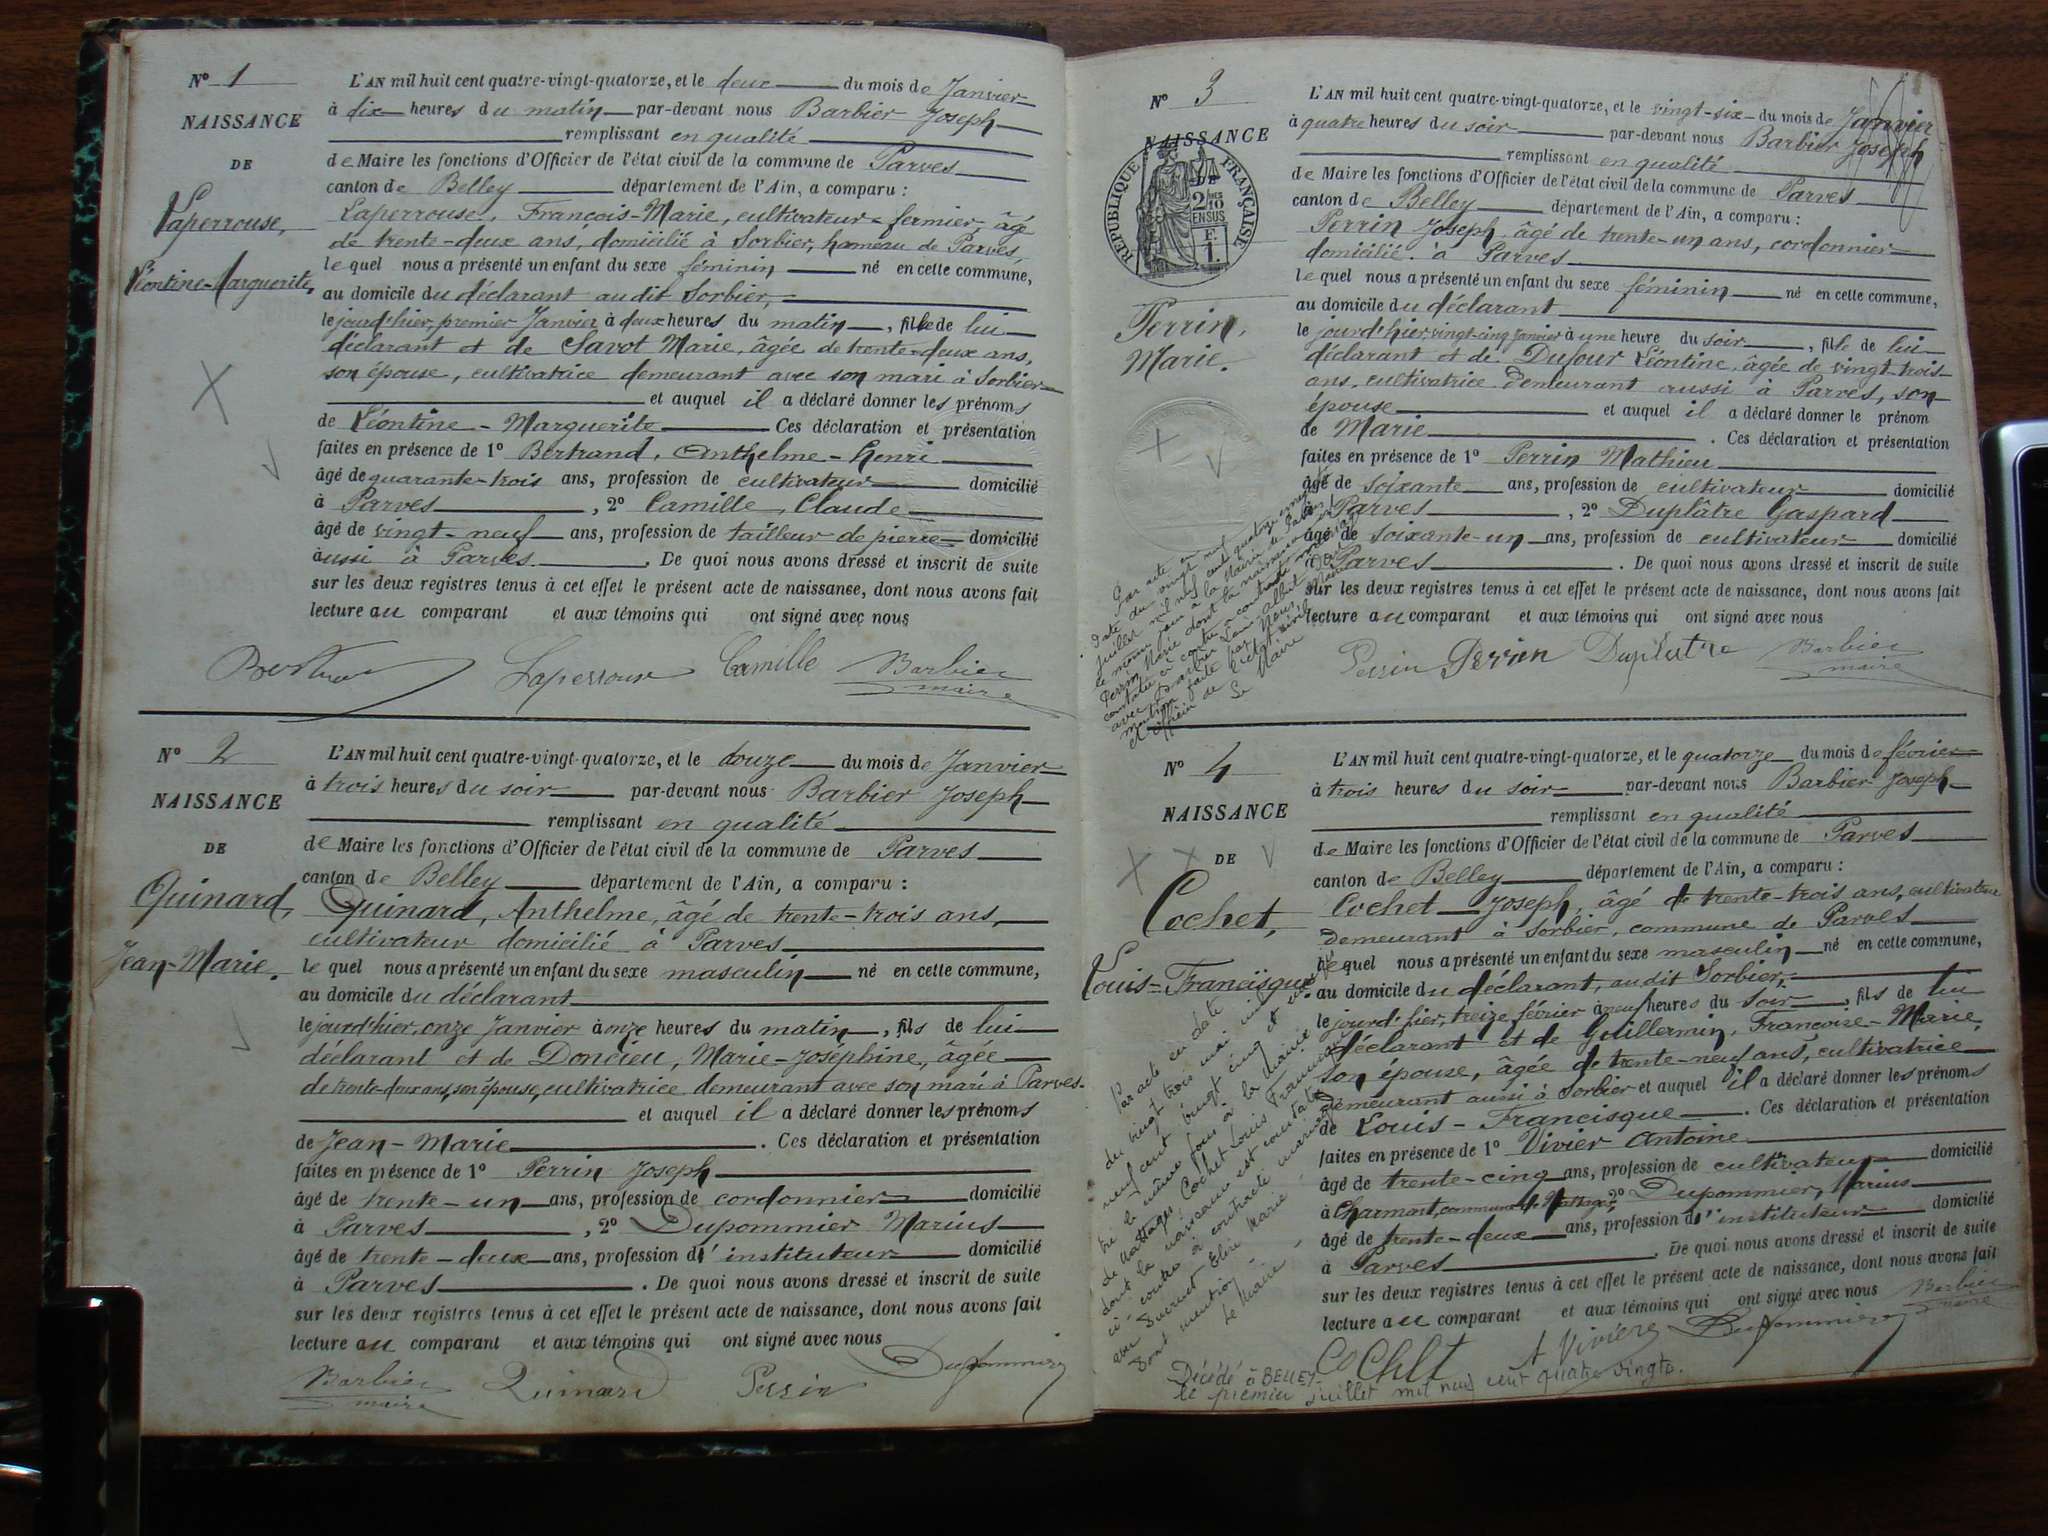 N° 1
NAISSANCE
DE
Laperrouse,
Léontine-Marguerite,
L'AN mil huit cent quatre-vingt-quatorze, et le deux du mois de Janvier
à dix heures du matin par-devant nous Barbier Joseph
remplissant en qualité
de Maire les fonctions d'Officier de l'état civil de la commune de Parves
canton de Belley département de l'Ain, a comparu :
Laperrouse, François-Marie, cultivateur-fermier, âgé
de trente-deux ans, domicilié à Sorbier, hameau de Parves,
le quel nous a présenté un enfant du sexe féminin né en cette commune,
au domicile du déclarant au dit Sorbier,
le jourd'hier, premier Janvier à deux heures du matin, fille de lui
déclarant et de Savot Marie, âgée de trente-deux ans,
son épouse, cultivatrice demeurant avec son mari à Sorbier
et auquel il a déclaré donner les prénoms
de Léontine-Marguerite Ces déclaration et présentation
faites en présence de 1° Bertrand, Anthelme-Henri
âgé de quarante-trois ans, profession de cultivateur domicilié
à Parves, 2° Camille, Claude
âgé de vingt-neuf ans, profession de tailleur de pierre domicilié
aussi à Parves. De quoi nous avons dressé et inscrit de suite
sur les deux registres tenus à cet effet le présent acte de naissance, dont nous avons fait
lecture au comparant et aux témoins qui ont signé avec nous
Laperrouse Camille Barbier
maire
N° 2
NAISSANCE
DE
Quinard,
Jean-Marie.
L'AN mil huit cent quatre-vingt-quatorze, et le douze du mois de Janvier
à trois heures du soir par-devant nous Barbier Joseph
remplissant en qualité
de Maire les fonctions d'Officier de l'état civil de la commune de Parves
canton de Belley département de l'Ain, a comparu :
Quinard, Anthelme, âgé de trente-trois ans,
cultivateur domicilié à Parves
le quel nous a présenté un enfant du sexe masculin né en cette commune,
au domicile du déclarant
le jourd'hier, onze Janvier à onze heures du matin, fils de lui
déclarant et de Doncieu, Marie-Joséphine, âgée
de trente-deux ans, son épouse, cultivatrice demeurant avec son mari à Parves.
et auquel il a déclaré donner les prénoms
de Jean-Marie. Ces déclaration et présentation
faites en présence de 1° Perrin Joseph
âgé de trente-un ans, profession de cordonnier domicilié
à Parves, 2° Dupommier Marius
âgé de trente-deux ans, profession d'instituteur domicilié
à Parves. De quoi nous avons dressé et inscrit de suite
sur les deux registres tenus à cet effet le présent acte de naissance, dont nous avons fait
lecture au comparant et aux témoins qui ont signé avec nous
Barbier Quinard Perrin Dupommier
maire
N° 3
NAISSANCE
DE
RÉPUBLIQUE FRANÇAISE
2/10
EN SUS
F.
1.
Perrin,
Marie.
L'AN mil huit cent quatre-vingt-quatorze, et le vingt-six du mois de Janvier
à quatre heures du soir par-devant nous Barbier Joseph
remplissant en qualité
de Maire les fonctions d'Officier de l'état civil de la commune de Parves
canton de Belley département de l'Ain, a comparu :
Perrin Joseph, âgé de trente-un ans, cordonnier
domicilié à Parves
le quel nous a présenté un enfant du sexe féminin né en cette commune,
au domicile du déclarant
le jourd'hier, vingt-cinq Janvier à une heure du soir, fille de lui
déclarant et de Dufour Léontine, âgée de vingt-trois
ans, cultivatrice demeurant aussi à Parves, son
épouse et auquel il a déclaré donner le prénom
de Marie. Ces déclaration et présentation
faites en présence de 1° Perrin Mathieu
âgé de soixante ans, profession de cultivateur domicilié
à Parves, 2° Duplâtre Gaspard
âgé de soixante-un ans, profession de cultivateur domicilié
à Parves. De quoi nous avons dressé et inscrit de suite
sur les deux registres tenus à cet effet le présent acte de naissance, dont nous avons fait
lecture au comparant et aux témoins qui ont signé avec nous
Perrin Perrin Duplatre Barbier
maire
Par acte en
date du vingt neuf
juillet mil neuf cent quatorze
Perrin Marie dont la naissance
mention faite par Nous, Maire
et officier de l'état civil
Le Maire
N° 4
NAISSANCE
DE
Cochet,
Louis-Francisque
L'AN mil huit cent quatre-vingt-quatorze, et le quatorze du mois de février
à trois heures du soir par-devant nous Barbier Joseph
remplissant en qualité
de Maire les fonctions d'Officier de l'état civil de la commune de Parves
canton de Belley département de l'Ain, a comparu :
Cochet Joseph, âgé de trente-trois ans, cultivateur
demeurant à Sorbier, commune de Parves
le quel nous a présenté un enfant du sexe masculin né en cette commune,
au domicile du déclarant, au dit Sorbier,
le jourd'hier, treize février à neuf heures du soir, fils de lui
déclarant et de Guillermin, Françoise-Marie,
son épouse, âgée de trente-neuf ans, cultivatrice
demeurant aussi à Sorbier et auquel il a déclaré donner les prénoms
de Louis-Francisque. Ces déclaration et présentation
faites en présence de 1° Vivier Antoine
âgé de trente-cinq ans, profession de cultivateur domicilié
à Charmont, commune de 2° Dupommier, Marius
âgé de trente-deux ans, profession d'instituteur domicilié
à Parves. De quoi nous avons dressé et inscrit de suite
sur les deux registres tenus à cet effet le présent acte de naissance, dont nous avons fait
lecture au comparant et aux témoins qui ont signé avec nous Barbier
maire
Cochet A Vivier Dupommier
Par acte en date
du vingt trois mai mil
neuf cent vingt cinq et
Cochet Louis Francisque
dont la naissance est constatée
ci-contre a contracté mariage
dont mention
Le Maire
Décédé à BELLEY
le premier juillet mil neuf cent quatre vingts.